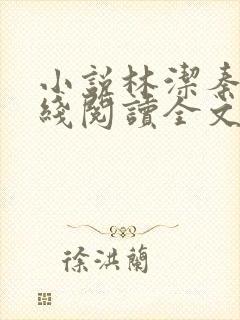 小説林潔秦
綫閱讀全文
徐洪蘭